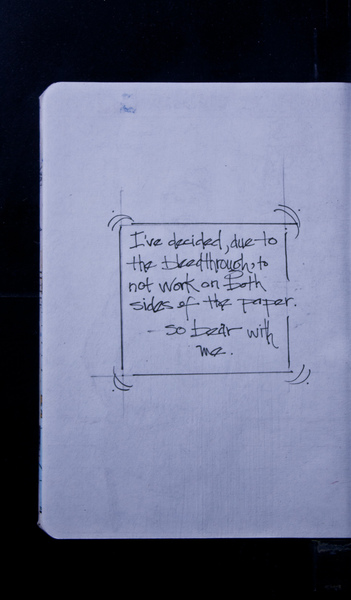 I've decided, due to
the bleedthrough, to
not work on both
sides of the paper.
- so bear with
me.